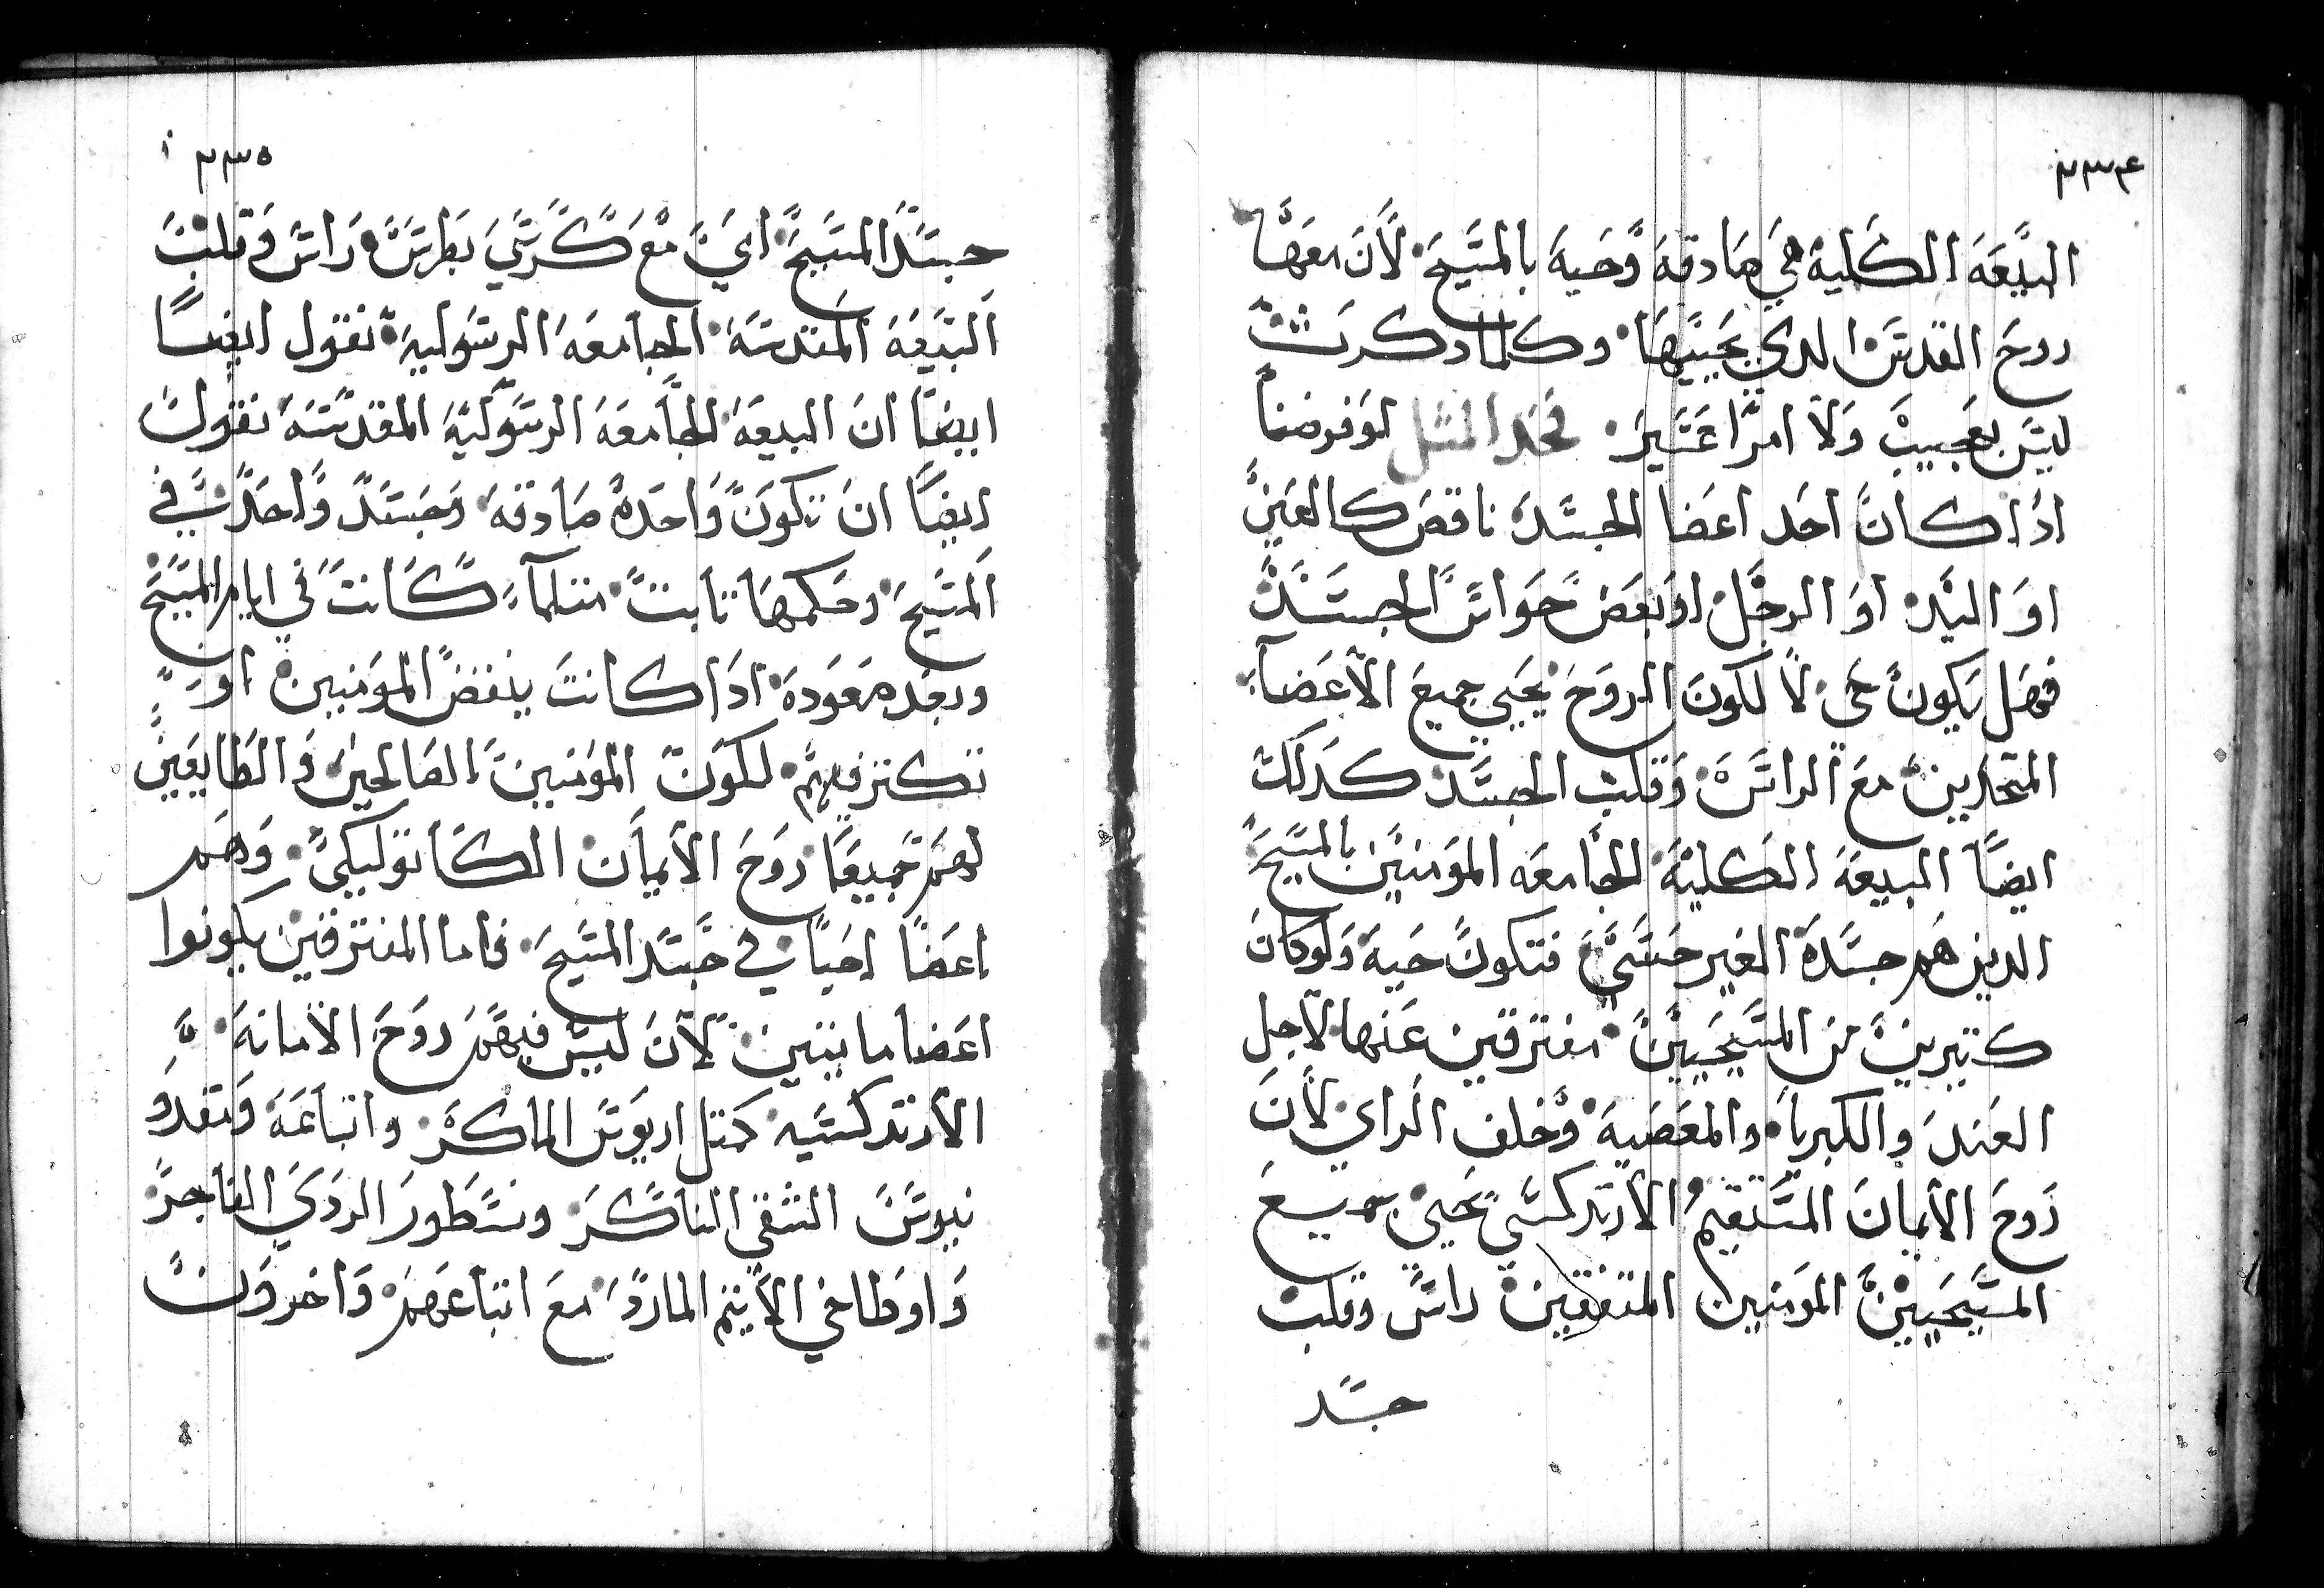 ٢٣٤
البيعَة الكَلية هي صَادقة وَحَية بالمسَيح لأن معَها
روحَ القدسَ الدي يحَييهَا وكلما دكرت
ليسَ بعَجيب وَلا امرًا عَسَير فخد المثل لوَفرضنا
ادا كان احَد اعضا الجسَد ناقصَ كالعَين
اوَ اليَد اوَ الرجل اوَ بعَض حَواسَ الجسَد
فهَل يكون حَي لا لكون الروَحَ يحَيي جميعَ الأعَضآء
المتحَدين معَ الراسَ وَقلب الجسَد كدلك
ايضًا البيعَة الكَلية الجَامعَه المؤمنين بالمسَيح
الدين هَم جسَدَة الغير حسَي فتكون حَية وَلوكان
كتيرين من المسَيحَيين مفترقين عَنها لآجل
العَند والكبريا والمعَصَية وَخلف الراي لأن
رَوحَ الأيمان المسَتقيم الأرتدكسَي يحَيي جميع
المسَيحَيين المؤمنين المتفقين راسَ وقلب
جسَد
٢٣٥
جسَد المسَيحَ ايَ معَ كَرسَي بطرسَ راسَ وَقلب
البيَعَة المقدسَة الجامعَة الرسَوليه نقول ايضًا
ايضًا ان البيعَة الجَامعَة الرسَوليَة المقدسَة نقول
ايضًا ان تكونَ وَاحَدة صَادقة وَجسَد وَاحَد في
المسَيح وحَكمهَا تابت متلمآ كَانت في ايام المسَيح
وبعَد صَعَودة ادَا كانت ينقضَ المؤمنين او
تكتر فيهم لكَون المؤمنين الصَالحين وَالطَايعَين
لهم جميعَا رَوحَ الأيمان الكَاتوليكي وَهَم
اعَضا احَيا في جسَد المسَيحَ فاما المفترقين يكونوا
اعَضا مايتين لآن ليسَ فيهَم روَحَ الأمانة
الأرتدكسَيه كمتل اريوَسَ الماكر واتباعَة وَمقدو
نيوسَ الشقي الناكر ونسَطورَ الردَي الفاجر
وَاوَطاخي الأيثم الماردَ معَ اتباعَهم وَاخروَن